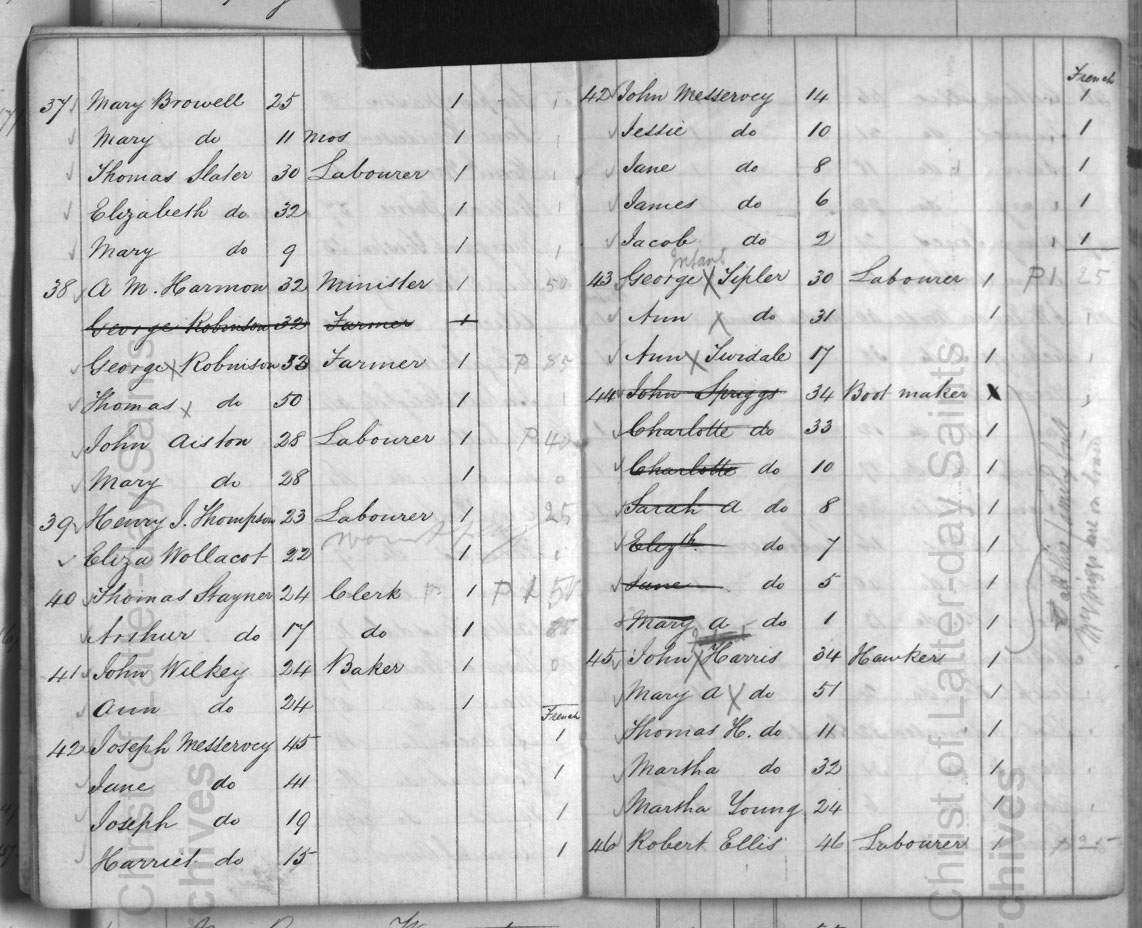 37 Mary Browell 25 1
Mary do 11 mos 1
Thomas Slater 30 Labourer 1
Elizabeth do 32 1
Mary do 9 1
38 A M. Harmon 32 Minister 1 50
George Robinson 32 Farmer 1
George X Robinson 53 Farmer 1 P 85
Thomas X do 50 1
John Aiston 28 Labourer 1 P
Mary do 28 1
39 Henry J. Thompson 23 Labourer 1 25
Eliza Wollacot 22 1
40 Thomas Stayner 24 Clerk 1 P 1
Arthur do 17 do 1
41 John Wilkey 24 Baker 1
Ann do 24 1
French
42 Joseph Messervey 45 1
Jane do 41 1
Joseph do 19 1
Harriet do 15 1
French
42 John Messervey 14 1
Jessie do 10 1
Jane do 8 1
James do 6 1
Jacob do 2 1
Infant
43 George X Sipler 30 Labourer 1 P 1 25
Ann X do 31 1
Ann X Twidale 17 1
44 John Spriggs 34 Boot maker X
Charlotte do 33 1
Charlotte do 10 1
Sarah A do 8 1
Elizth. do 7 1
Jane do 5 1
Mary A do 1 1
45 John X Harris 34 Hawker 1
Mary A X do 51 1
Thomas H. do 11 1
Martha do 32 1
Martha Young 24 1
46 Robert Ellis 46 Labourer 1 25
Christ of Latter-day Saints
Archives
Christ of Latter-day Saints
Archives